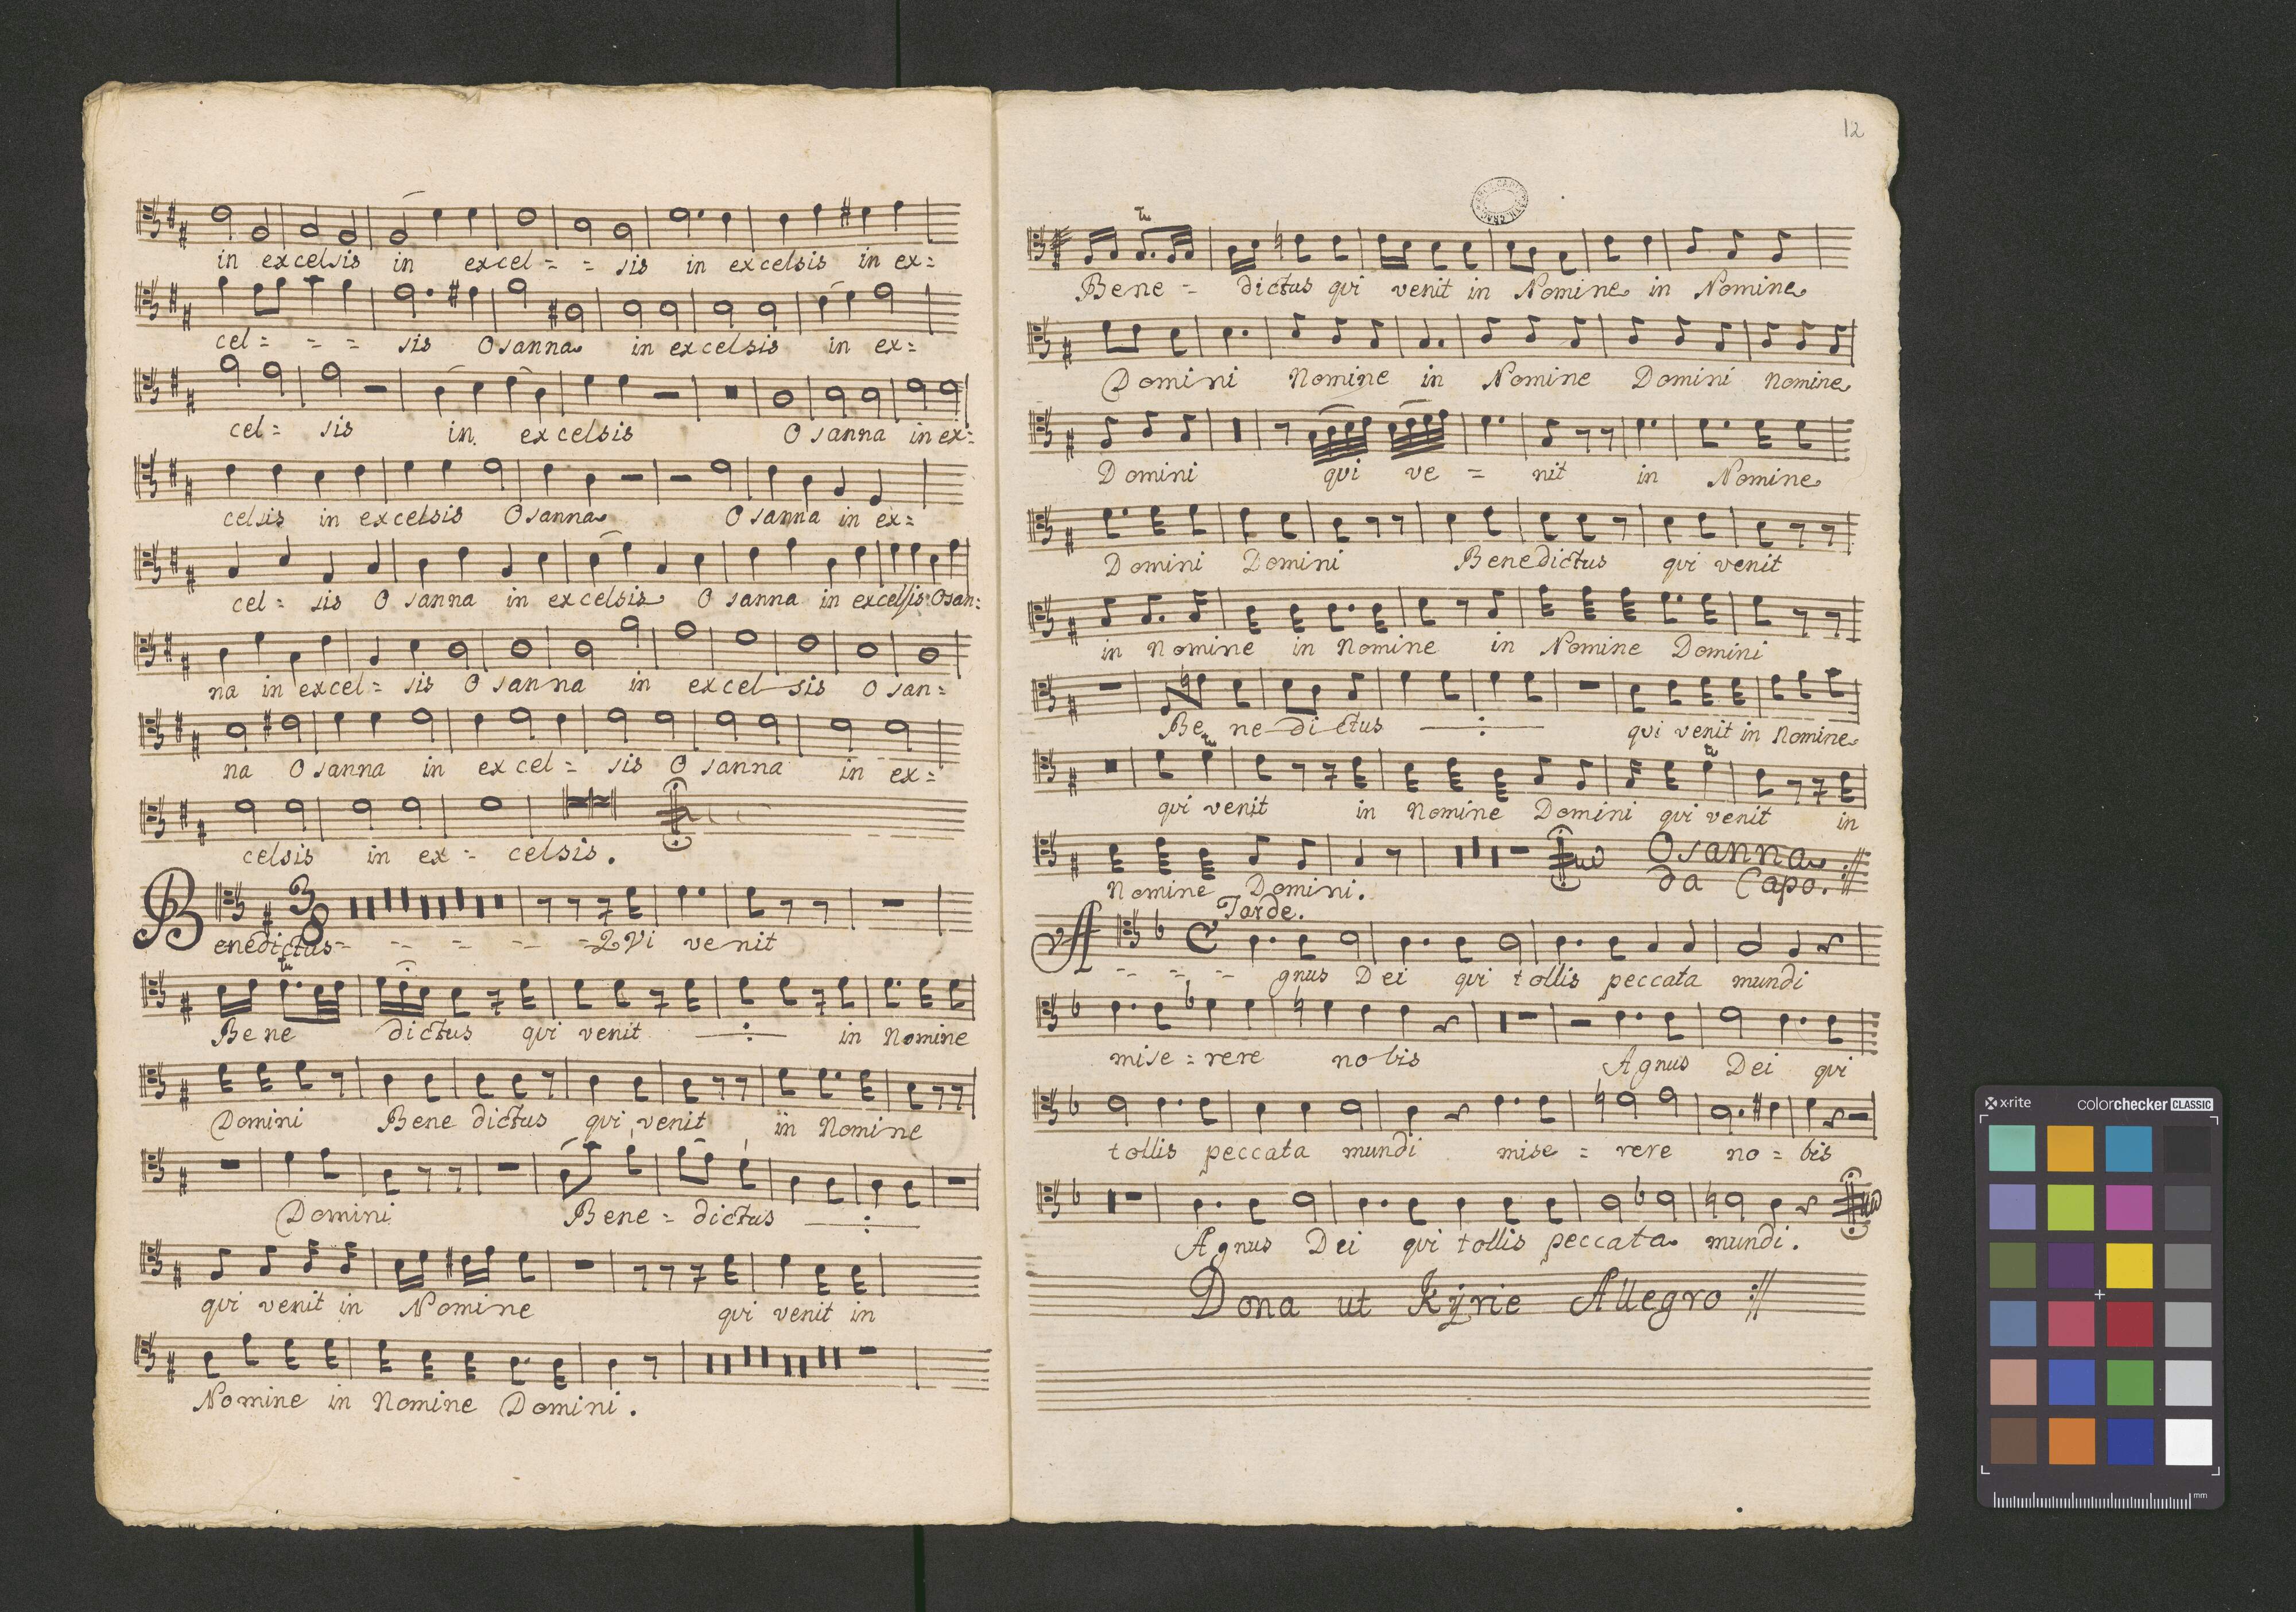 in excelsis in excel= = sis in excelsis in ex=
cel= = = sis Osanna in excelsis in ex=
cel= sis in excelsis Osanna in ex=
celsis in excelsis Osanna Osanna in ex=
cel= sis Osanna in excelsis Osanna in excelsis Osan=
na in excel= sis Osanna in excel sis Osan=
na Osanna in excel= sis Osanna in ex=
celsis in ex= celsis.
3
8
Benedictus= = = = =Qvi venit
tr
Bene dictus qvi venit in Nomine
Domini Bene dictus qvi venit in Nomine
Domini Bene= dictus
qvi venit in Nomine qvi venit in
Nomine in Nomine Domini.
12
tr
Bene= dictus qvi venit in Nomine in Nomine
Domini Nomine in Nomine Domini Nomine
Domini qvi ve = nit in Nomine
Domini Domini Benedictus qvi venit
in Nomine in Nomine in Nomine Domini
Be ne di ctus qvi venit in Nomine
tr tr
qvi venit in Nomine Domini qvi venit in
Osanna
da Capo.
Nomine Domini.
Tarde.
A = = = gnus Dei qvi tollis peccata mundi
mise=rere nobis Agnus Dei qvi
tollis peccata mundi mise = rere no = bis
Agnus Dei qvi tollis peccata mundi.
Dona ut Kÿrie Allegro
x-rite colorchecker CLASSIC
mm